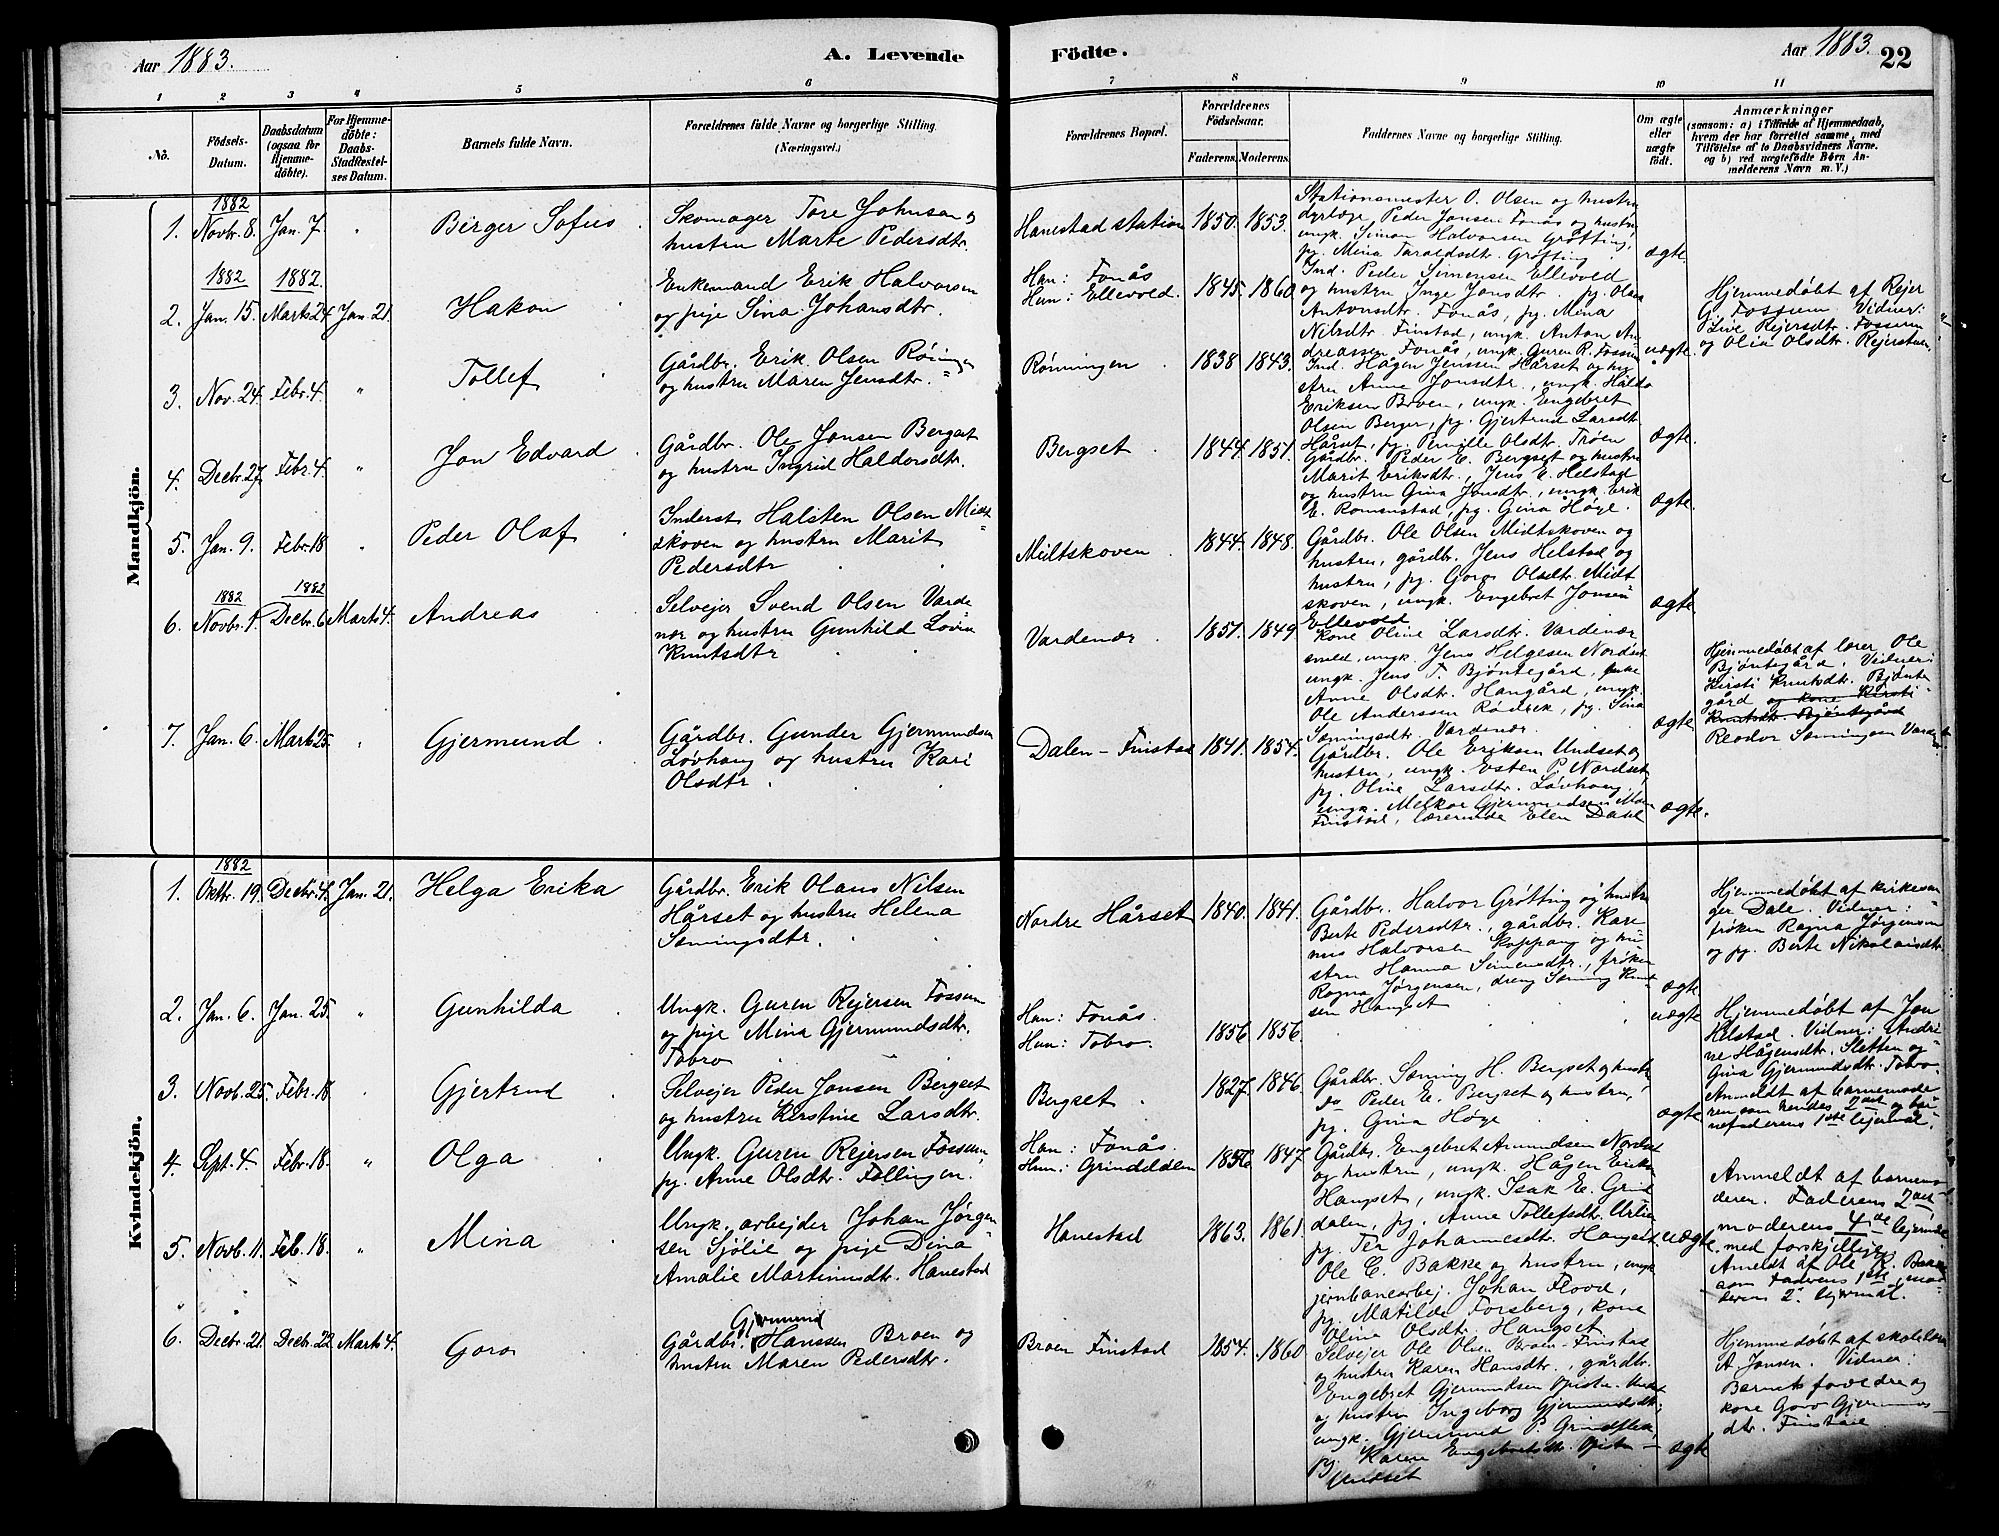 Aar 1883.
A. Levende Födte.
Aar 1883.
22
1 2 3 4 5 6 7 8 9 10 11
No.
Födsels-
Datum.
Daabsdatum
(ogsaa for
Hjemme-
döbte).
For Hjemme-
döbte:
Daabs-
Stadfæstel-
ses Datum.
Barnets fulde Navn.
Forældrenes fulde Navne og borgerlige Stilling
(Næringsvei.)
Forældrenes Bopæl.
Forældrenes
Födselsaar.
Faderens.
Moderens.
Faddernes Navne og borgerlige Stilling.
Om ægte
eller
uægte
födt.
Anmærkninger
(saasom: a) i Tilfælde af Hjemmedaab,
hvem der har forrettet samme, med
Tilföielse af to Daabsvidners Navne.
og b) ved uægtefödte Börn An-
melderens Navn m. V.)
Mandkjön.
1882
1. Novbr. 8. Jan. 7. " Birger Sofus
Skomager Tore Johnsen og
hustru Marte Pedersdtr.
Hanestad station 1850. 1853.
Stationsmester O. Olsen og hustru
dyrlæge Peder Jonsen Fonås og hustru
ungk. Simon Halvorsen Grøtting,
pg. Mina Taraldsdtr. Grøtting
ægte.
1882 1882.
2. Jan. 15. Marts 24. Jan. 21. Hakon
Enkemand Erik Halvorsen
og pige Sina Johansdtr.
Han: Fonås
Hun: Ellevold. 1845. 1860.
Ind. Peder Simensen Ellevold
og hustru Inge Jonsdtr. pg. Olea
Antonsdtr. Fonås, pg. Mina
Nilsdtr. Finstad, ungk. Anton An-
dreassen Fonås, ungk. Guren R. Fossum
uægte.
Hjemmedøbt af Rejer
G. Fossum. Vidner:
Live Rejersdtr. Fossum
og Olia Olsdtr. Rejerstuen.
3. Nov. 24. Febr. 4. " Tollef
Gårdbr. Erik Olsen Rønningen
og hustru Maren Jensdtr.
Rønningen 1838 1843.
Ind. Hågen Jenssen Hårset og hu
stru Anne Jonsdtr., ungk. Haldo
Eriksen Broen, ungk. Engebret
Olsen Berger, pg. Gjertrud Larsdtr
Hårset, pg. Pernille Olsdtr. Trøen
ægte
4. Decbr. 27. Febr. 4. " Jon Edvard
Gårdbr. Ole Jonsen Bergset
og hustru Ingrid Haldorsdtr.
Bergset 1844. 1851.
Gårdbr. Peder E. Bergset og hustru
Marit Eriksdtr., Jens E. Helstad
og hustru Gina Jonsdtr., ungk. Erik
E. Romenstad, pg. Gina Høye.
ægte.
5. Jan. 9. Febr. 18 " Peder Olaf
Inderst Halsten Olsen Midt
skoven og hustru Marit
Pedersdtr
Midtskoven 1844. 1848.
Gårdbr. Ole Olsen Midtskoven og
hustru, gårdbr. Jens Helstad og
hustru, pg. Goro Olsdtr. Midt
skoven, ungk. Engebret Jonsen
Ellevold
ægte
1882 1882
6. Novbr. 1. Decbr. 6. Marts 4. Andreas
Selvejer Svend Olsen Varde
nær og hustru Gunhild Lovin
Knutsdtr
Vardenær 1851. 1849
Kone Oline Larsdtr. Vardenær
smed, ungk. Jens Helgesen Nordset
ungk. Jens T. Bjøntegård,
Anne Olsdtr. Hangård, ungk.
Ole Anderssen Rødbek, pg. Sina
Sæmingsdtr. Vardenær.
ægte
Hjemmedøbt af lærer Ole
Bjøntegård. Vidner:
Kirsti Knutsdtr. Bjønte
gård og kone Kirsti
Knutsdtr. Bjøntegård
Reodor Sæmingsen Varde
7. Jan. 6. Marts 25. " Gjermund
Gårdbr. Gunder Gjermundsen
Løvhaug og hustru Kari
Olsdtr.
Dalen-Finstad 1841. 1854.
Gårdbr. Ole Eriksen Undset og
hustru, ungk. Esten P. Nordset,
pg. Oline Larsdtr. Løvhaug,
ungk. Melkor Gjermundsen Moen
Finstad, lærerinde Elen Dahl
ægte.
Kvindekjön.
1882
1. Oktbr. 19. Decbr. 4. Jan. 21. Helga Erika
Gårdbr. Erik Olaus Nilsen
Hårset og hustru Helena
Sæmingsdtr.
Nordre Hårset 1840. 1841.
Gårdbr. Halvor Grøtting og hustru
Berte Pedersdtr., gårdbr. Kare
nus Halvorsen Koppang og hu-
stru Hanna Simensdtr., frøken
Ragna Jørgensen, dreng Sæming Knut
sen Hangset
ægte
Hjemmedøbt af kirkesan
ger Dale. Vidner:
frøken Ragna Jørgensen
og pg. Berte Nikolaisdtr.
2. Jan. 6. Jan. 25. " Gunhilda
Ungk. Guren Rejersen Fossum
og pige Mina Gjermundsdtr.
Tobro
Han: Fonås.
Hun: Tobro. 1856. 1856.
uægte
Hjemmedøbt af Jon
Helstad. Vidner: Andri
ne Hågensdtr. Sletten og
Gina Gjermundsdtr. Tobro.
Anmeldt af barnemode
ren som hendes 2det og bar
nefaderens 1ste lejermål.
3. Novb. 25. Febr. 18. " Gjertrud
Selvejer Peder Jonsen Bergset
og hustru Kerstine Larsdtr.
Bergset 1827. 1846.
Gårdbr. Sæming H. Bergset og hustru
do Peder E. Bergset og hustru,
pg. Gina Høye
ægte
4. Sept. 4. Febr. 18. " Olga
Ungk. Guren Rejersen Fossum,
pg. Anne Olsdtr. Follingen.
Han: Fonås.
Hun: Grinddalen 1856. 1847.
Gårdbr. Engebret Amundsen Nordset
og hustru, ungk. Hågen Eriks
Hangset, ungk. Isak E. Grind
dalen, pg. Anne Tollefsdtr. Urlie
pg. Ter Johannesdtr. Hangset.
Anmeldt af barnemo
deren. Faderens 2det,
moderens 4de lejermål
med forskjellige.
5. Novb. 11. Feb. 18. " Mina
Ungk. arbejder Johan Jørgen
sen Sjølie og pige Dina
Amalie Martinusdtr. Hanestad
Hanestad 1863. 1861.
Ole C. Bakke og hustru, ungk
jernbanearbej. Johan Flood,
pg. Matilde Forsberg, kone
Olina Olsdtr. Hangset.
uægte.
Anmeldt af Ole R. Bakke
som Faderens 1ste, mo
derens 2. lejermål.
6. Decbr. 21. Decbr. 22. Marts 4. Goro
Gjermund
Gårdbr. Hanssen Broen og
hustru Maren Pedersdtr.
Broen Finstad 1854. 1860
Selvejer Ole Olsen Broen-Finstad
og hustru Karen Hansdtr., gårdbr.
Engebret Gjermundsen Opistu-Undset
og hustru Ingeborg Gjermundsdtr.,
ungk. Gjermund P. Grindflek,
pg. Karen Engebretsdtr. Opistu-
Undset
ægte
Hjemmedøbt af skolelærer
A. Jonsen. Vidner:
Barnets forældre og
kone Goro Gjermunds
dtr. Finstad